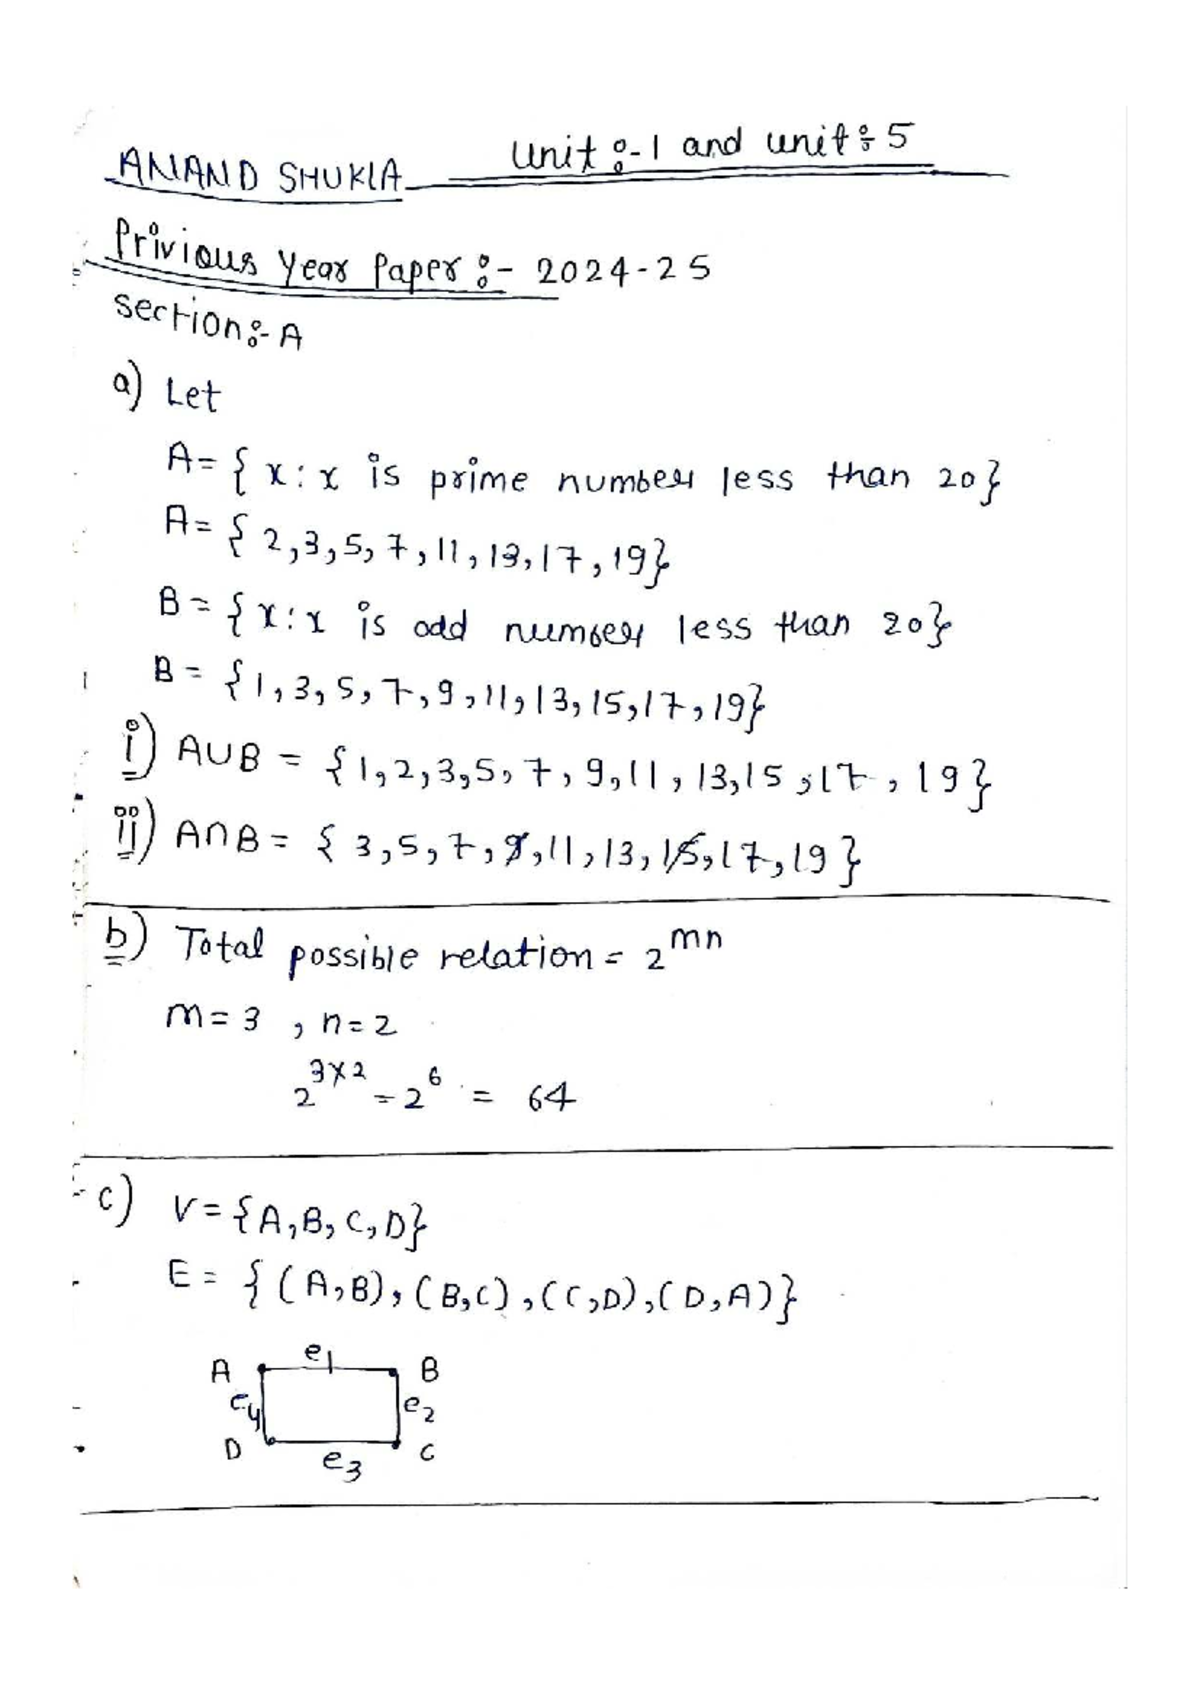 ANAND SHUKLA Unit:-1 and unit:5
Privious Year Paper:- 2024-25
section:- A
a) Let
A= { x : x is prime number less than 20}
A= { 2,3,5,7,11,13,17,19}
B = {x : x is odd number less than 20}
B = {1,3,5,7,9,11,13,15,17,19}
i) A∪B = {1,2,3,5,7,9,11,13,15,17,19}
ii) A∩B = { 3,5,7,9,11,13,15,17,19}
b) Total possible relation = 2^mn
m=3 , n=2
2^3×2 = 2^6 = 64
c) V={A,B,C,D}
E = { (A,B),(B,C),(C,D),(D,A)}
A e1 B
e4 e2
D e3 C